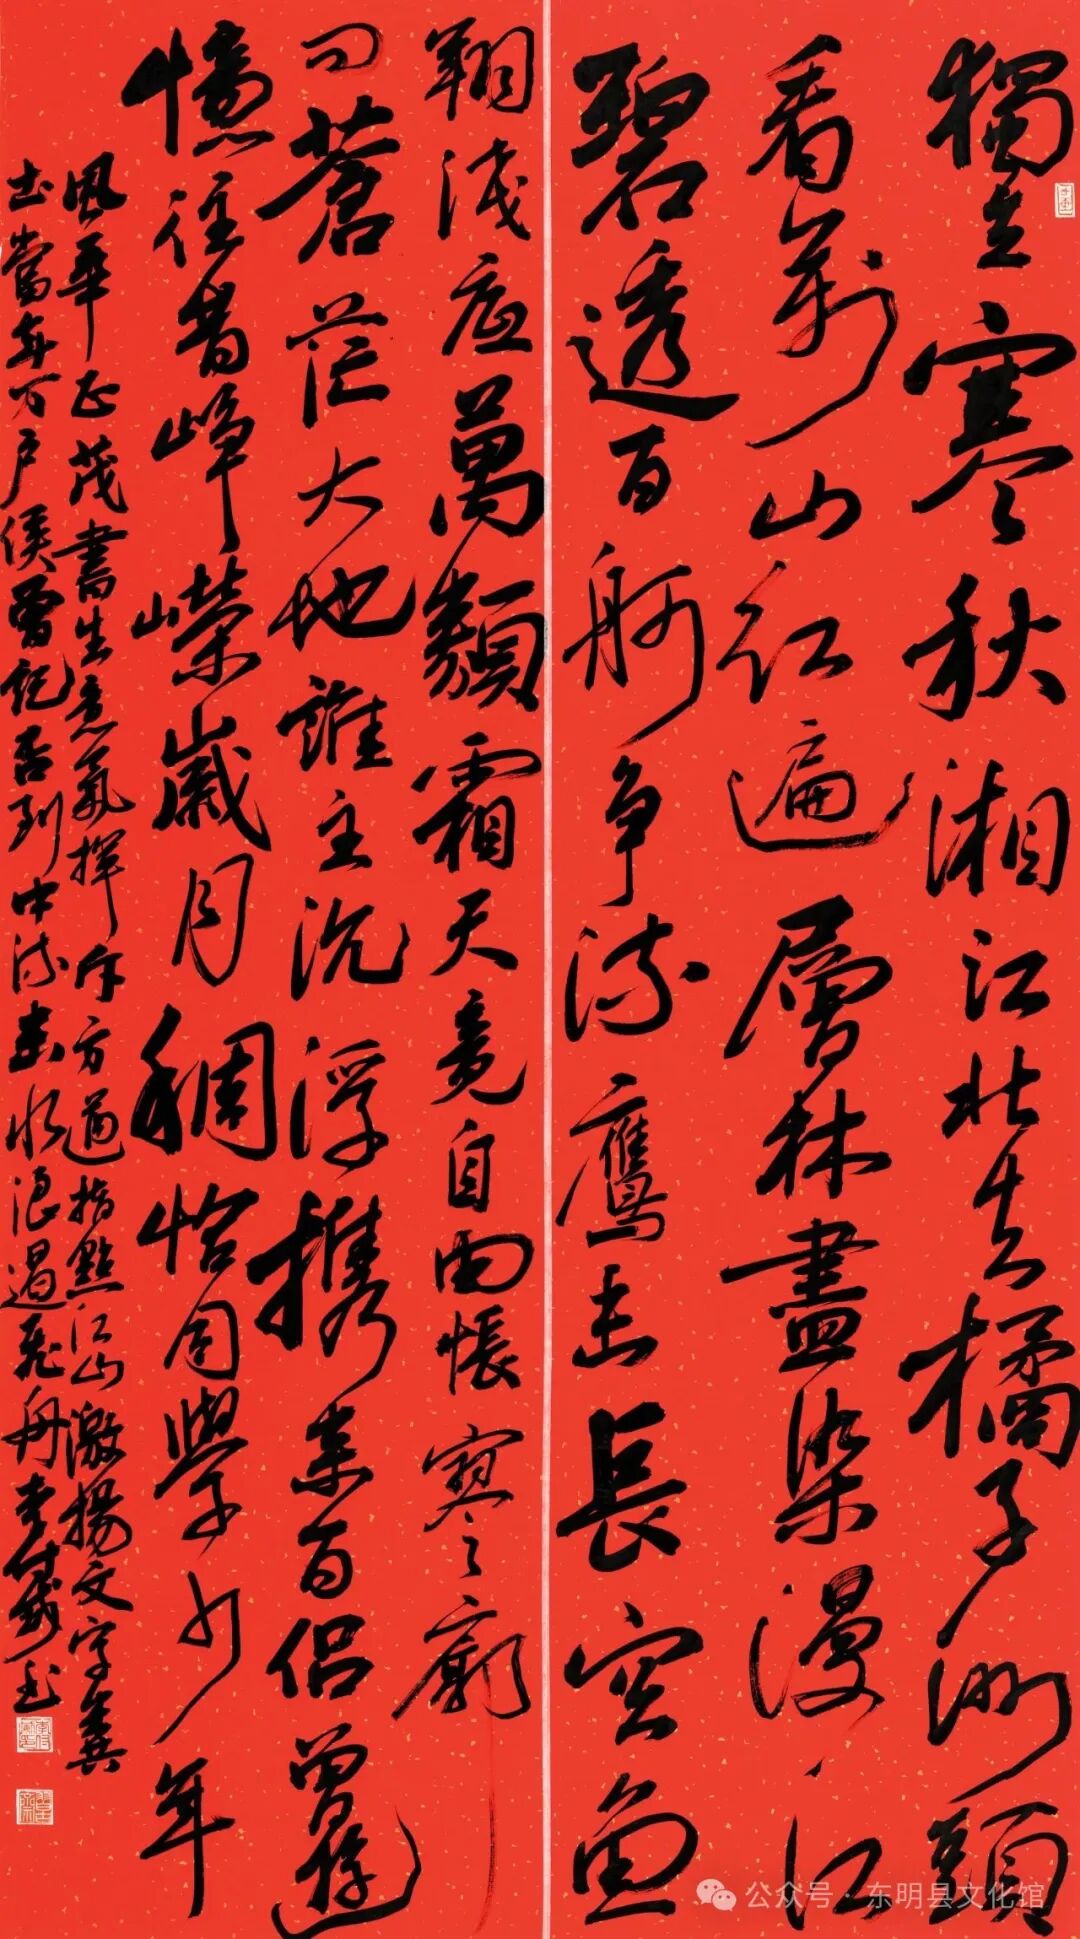 獨立寒秋湘江北去橘子洲頭
看萬山红遍層林盡染漫江
碧透百舸争流鷹击長空魚
翔浅底萬類霜天竞自由悵寥廓
问蒼茫大地誰主沉浮携来百侣曾遊
憶往昔峥嶸歲月稠恰同學少年
風華正茂書生意氣揮斥方遒指點江山激揚文字糞
土當年万户侯曾記否到中流击水浪遏飛舟李
公众号·东明县文化馆